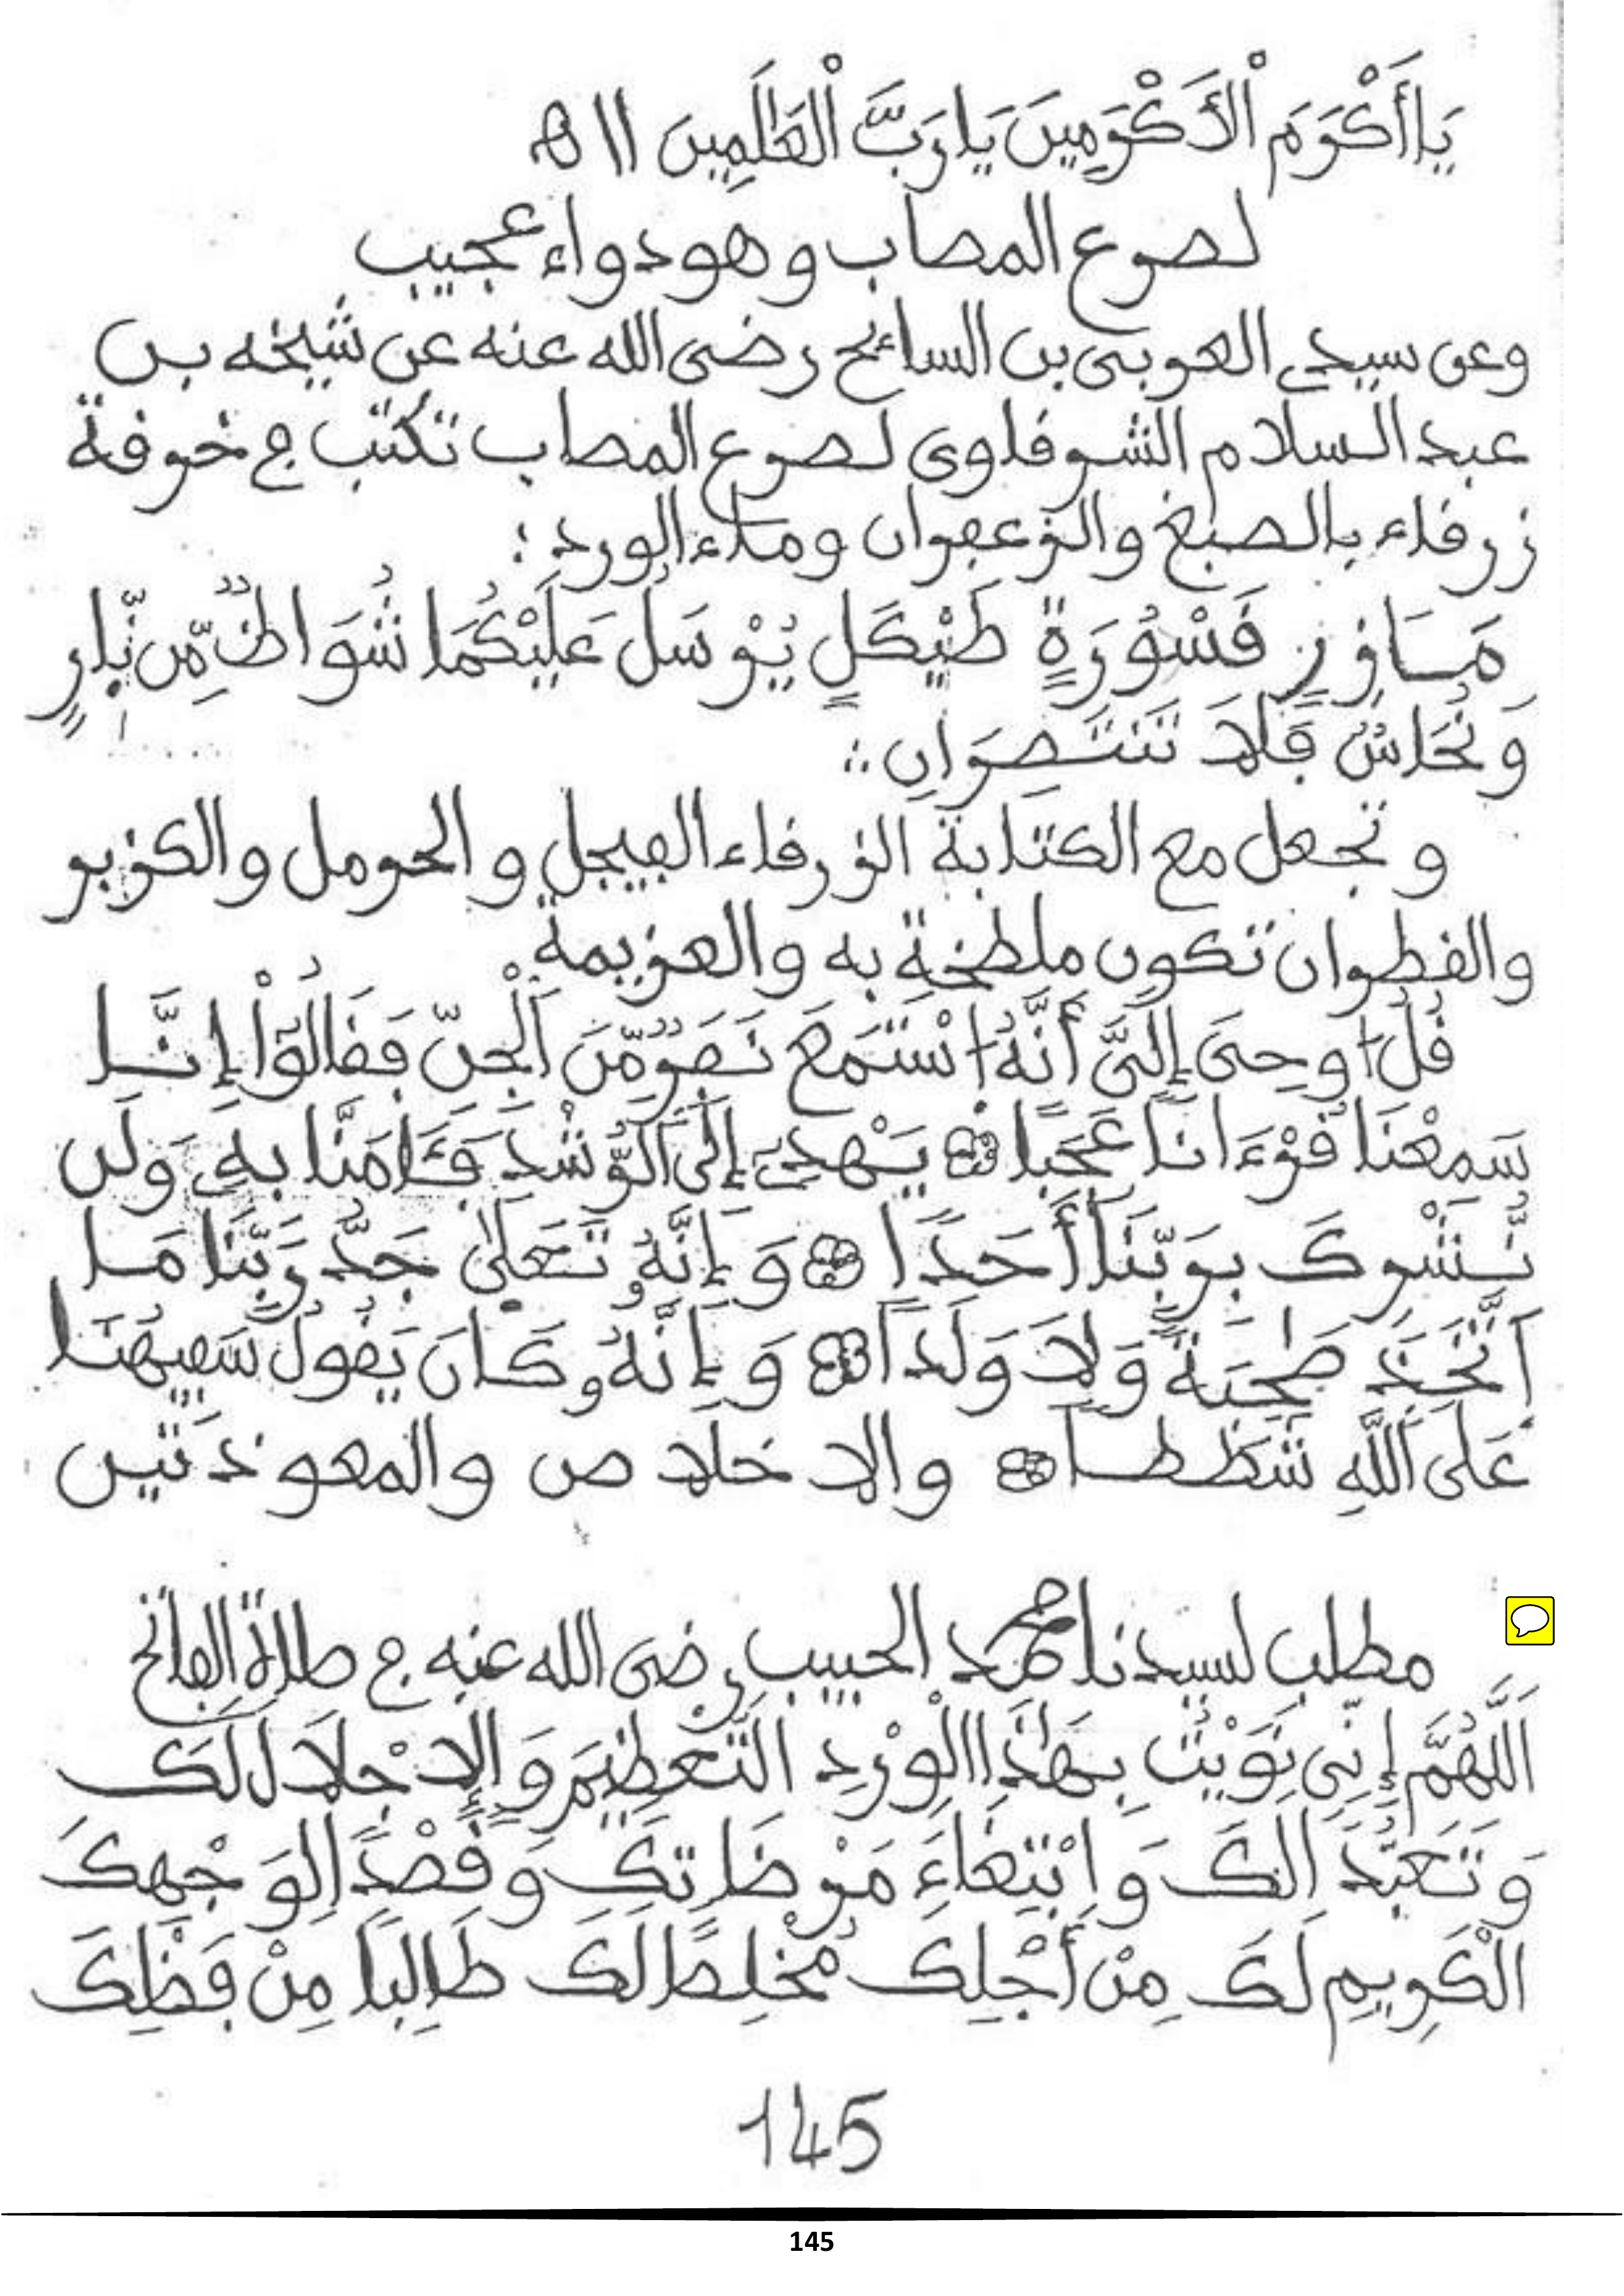 يَا أَكْرَمَ الْأَكْرَمِينَ يَا رَبَّ الْعَالَمِينَ اا ه
لصرع المصاب وهو دواء عجيب
وعن سيدي العربي بن السائح رضي الله عنه عن شيخه بن
عبد السلام الشرقاوي لصرع المصاب تكتب في خرقة
زرقاء بالصبغ والزعفران وماء الورد :
قَسْوَرَةٍ طَيْكَلٍ يُرْسَلُ عَلَيْكُمَا شُوَاظٌ مِّن نَّارٍ
وَنُحَاسٌ فَلَا تَنتَصِرَانِ ::
وتجعل مع الكتابة الزرقاء الفيجل والحرمل والكزبر
والقطران تكون ملطخة به والعزيمة
قُلُ اوحِيَ إِلَيَّ أَنَّهُ اسْتَمَعَ نَفَرٌ مِّنَ اَلْجِنِّ فَقَالُوٓاْ إِنَّا
سَمِعْنَا قُرْءَانًا عَجَبًا يَهْدِي إِلَى اَلرُّشْدِ فَـَٔامَنَّا بِهِ وَلَن
نُّشْرِكَ بِرَبِّنَا أَحَدًا وَإِنَّهُ تَعَالَىٰ جَدُّ رَبِّنَا مَا
اَتَّخَذَ صَٰحِبَةً وَلَا وَلَدًا وَإِنَّهُ كَانَ يَقُولُ سَفِيهُنَا
عَلَى اَللَّهِ شَطَطًا والاخلاص والمعوذتين
مطلب لسيدنا محمد الحبيب رضي الله عنه في صلاة الفاتح
اَللَّهُمَّ إِنِّي نَوَيْتُ بِهَٰذَا الْوِرْدِ التَّعْظِيمَ وَالِاجْلَالَ لَكَ
وَتَعَبُّدًا لَكَ وَابْتِغَاءَ مَرْضَاتِكَ وَقَصْدًا لِوَجْهِكَ
الْكَرِيمِ لَكَ مِنْ أَجْلِكَ مُخْلِصًا لَكَ طَالِبًا مِنْ فَضْلِكَ
145
145